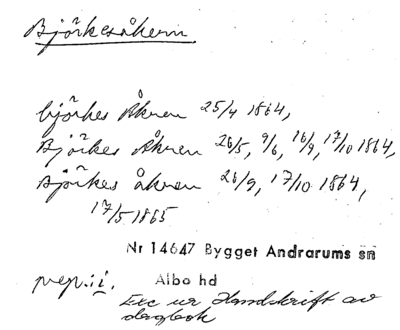 Björkesåkern
björkes Åkren 25/4 1864,
Björkes Åkren 26/5, 9/6, 16/9, 17/10 1864,
Björkes åkren 26/9, 17/10 1864,
17/5 1865
Nr 14647 Bygget Andrarums sn
Albo hd
pep:ii.
Exc ur Handskrift av
dagbok